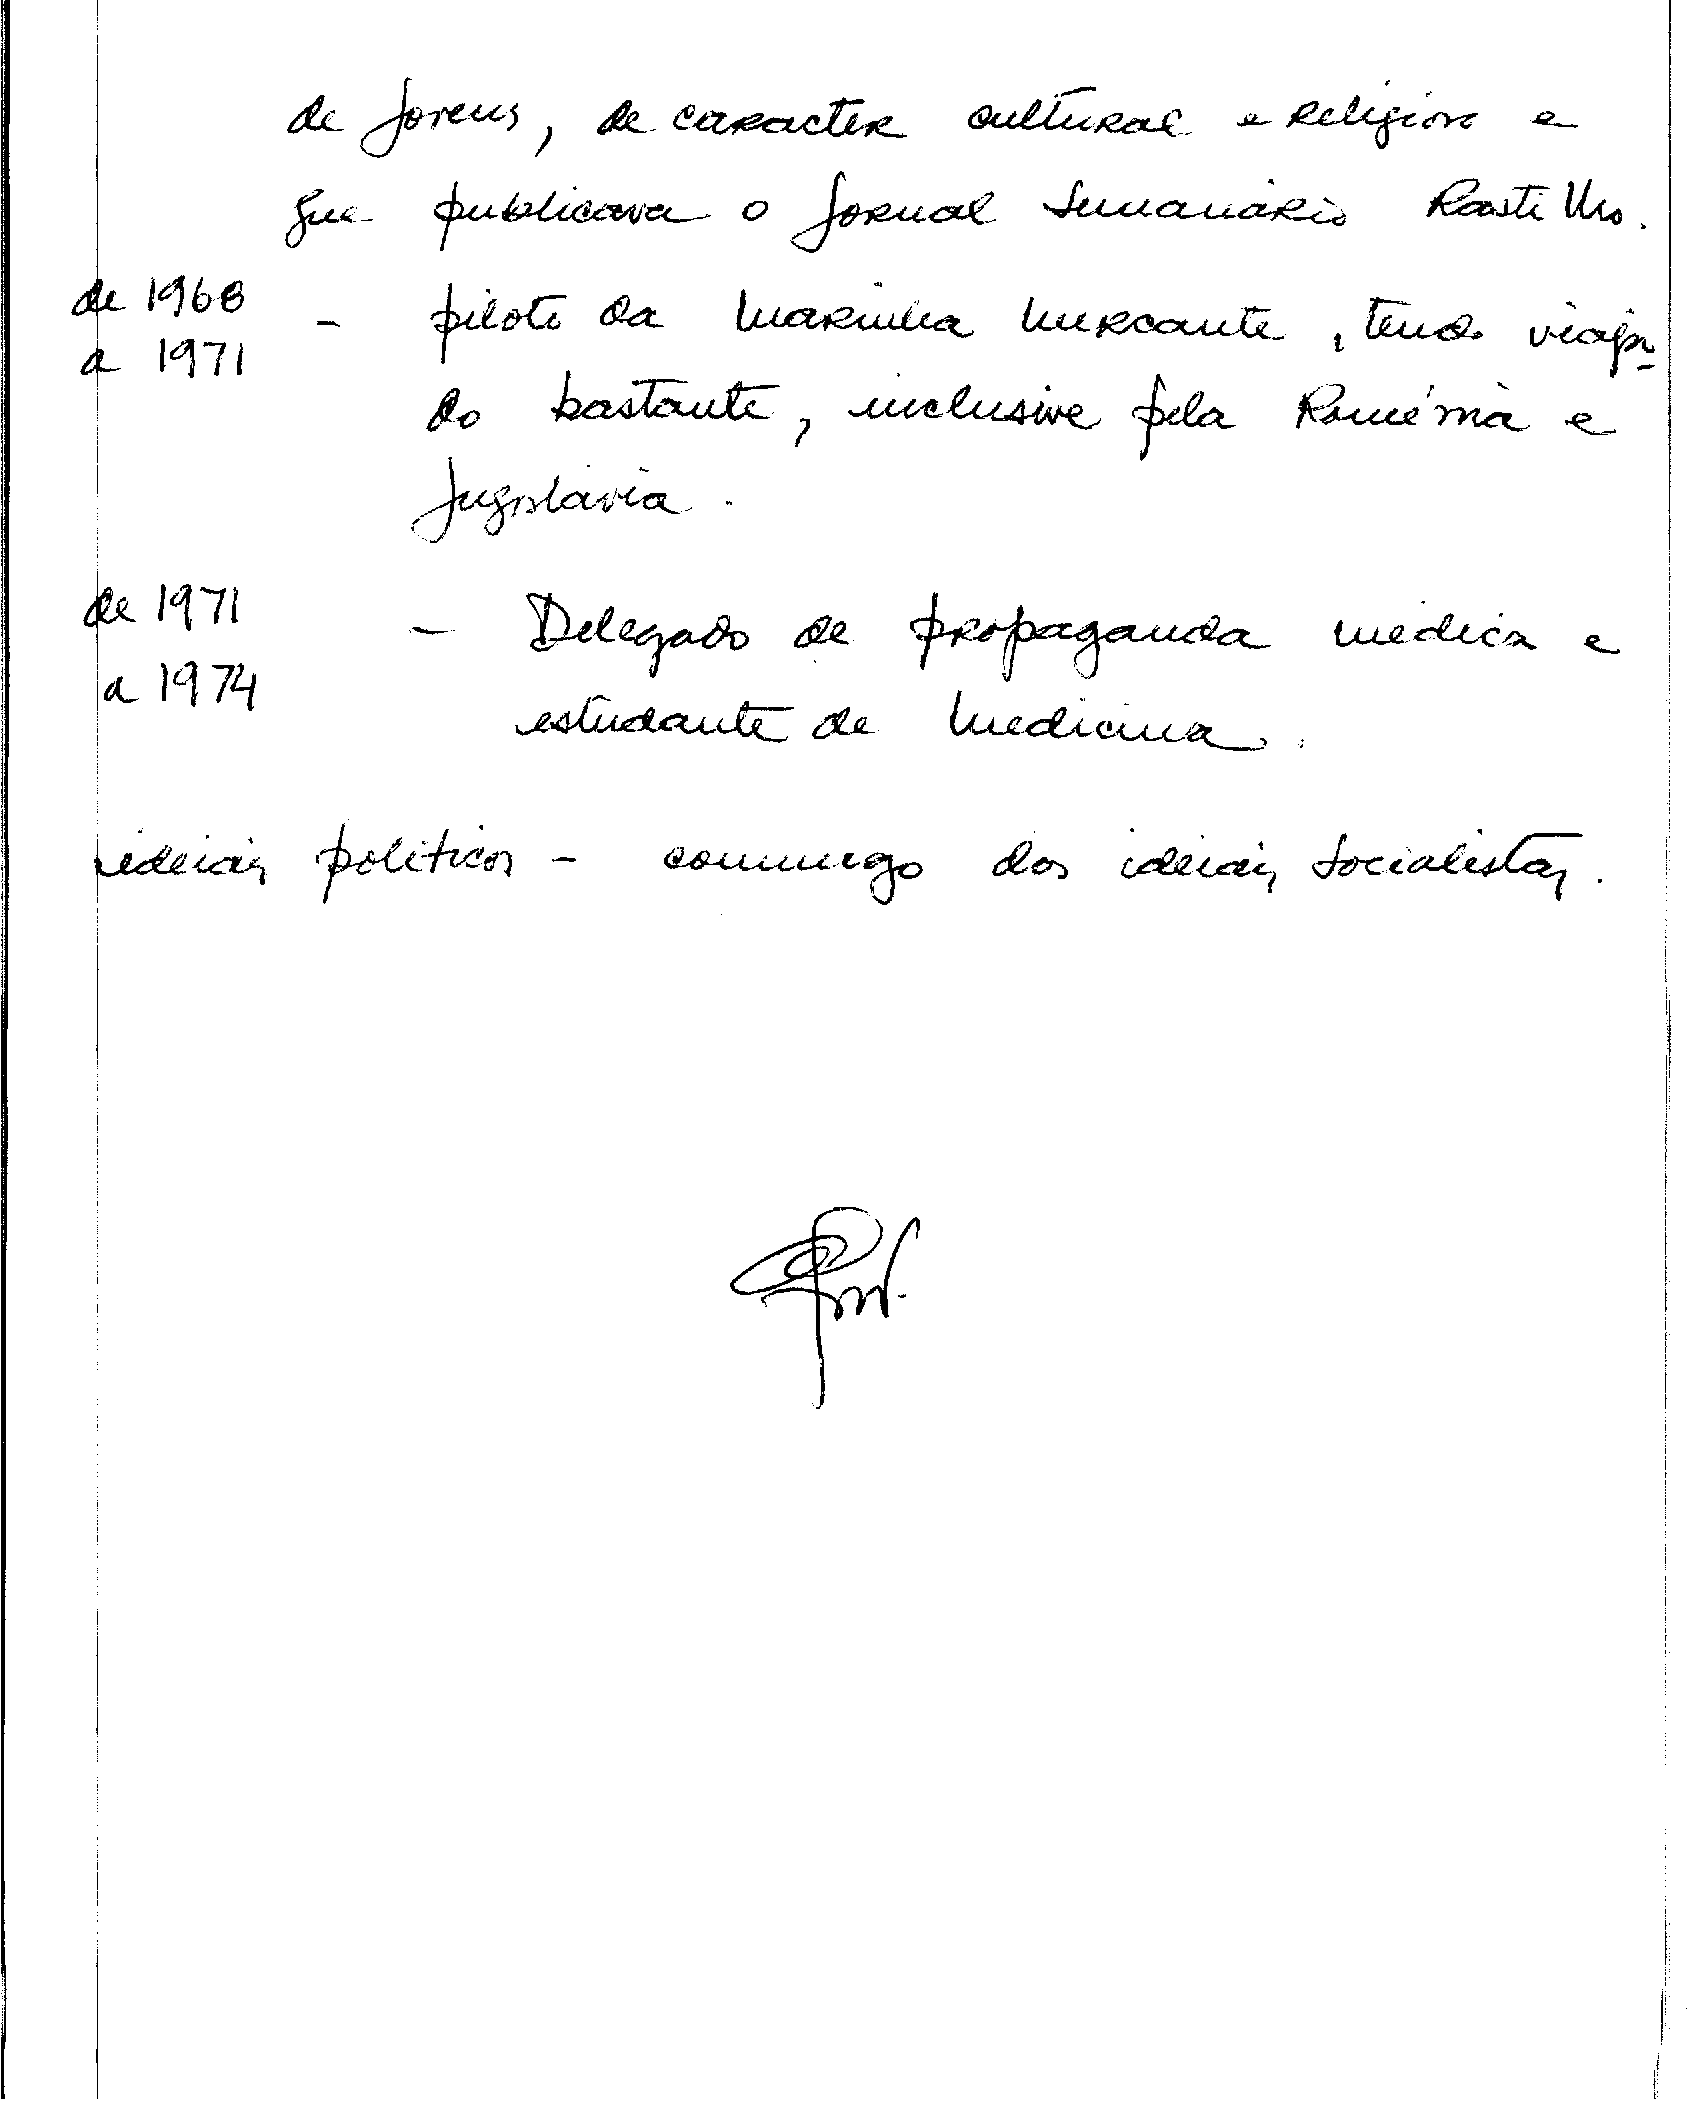 de jovens, de caracter cultural e religioso e
que publicava o jornal semanário Rastilho.
de 1968
a 1971
- piloto da marinha mercante, tendo viaja-
do bastante, inclusive pela Roménia e
Jugoslávia.
de 1971
a 1974
- Delegado de propaganda médica e
estudante de medicina.
ideias políticos - comungo dos ideias socialistas.